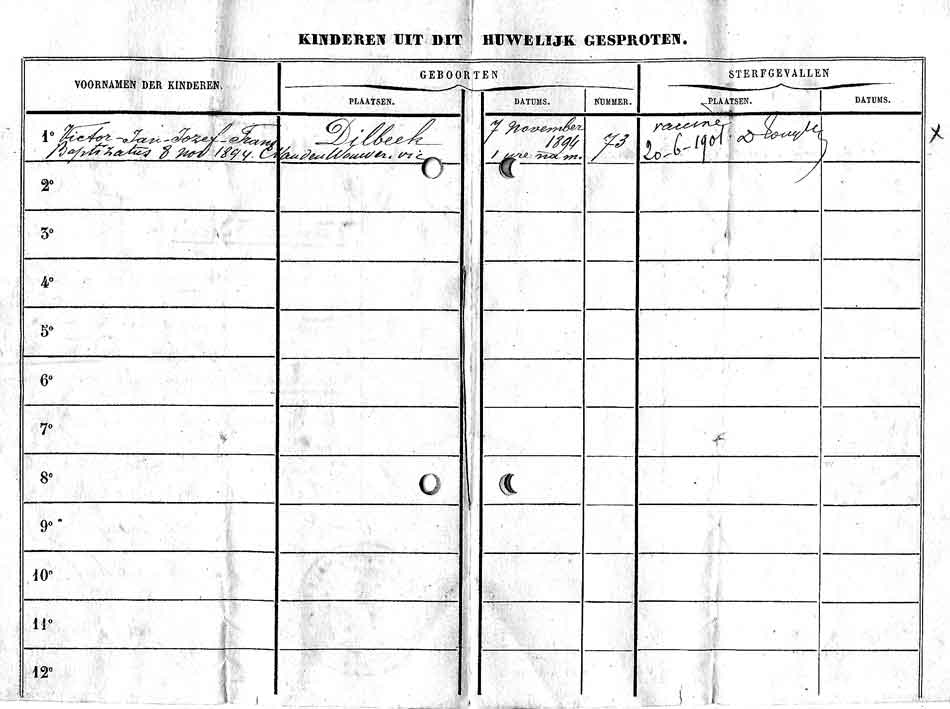 KINDEREN UIT DIT HUWELIJK GESPROTEN.
VOORNAMEN DER KINDEREN.
GEBOORTEN
STERFGEVALLEN
PLAATSEN.
DATUMS.
NUMMER.
PLAATSEN.
DATUMS.
1° Victor-Jan-Jozef-Frans
Baptizatus 8 nov 1894. C Vanden Wouwer. vic
Dilbeek
7 november
1894
1 ure na m.
73
vaccine
20-6-1901
2°
3°
4°
5°
6°
7°
8°
9°
10°
11°
12°